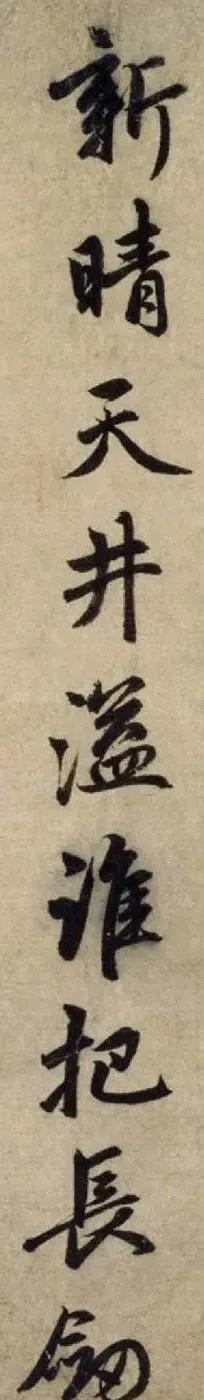 新晴天井溢誰把長劒